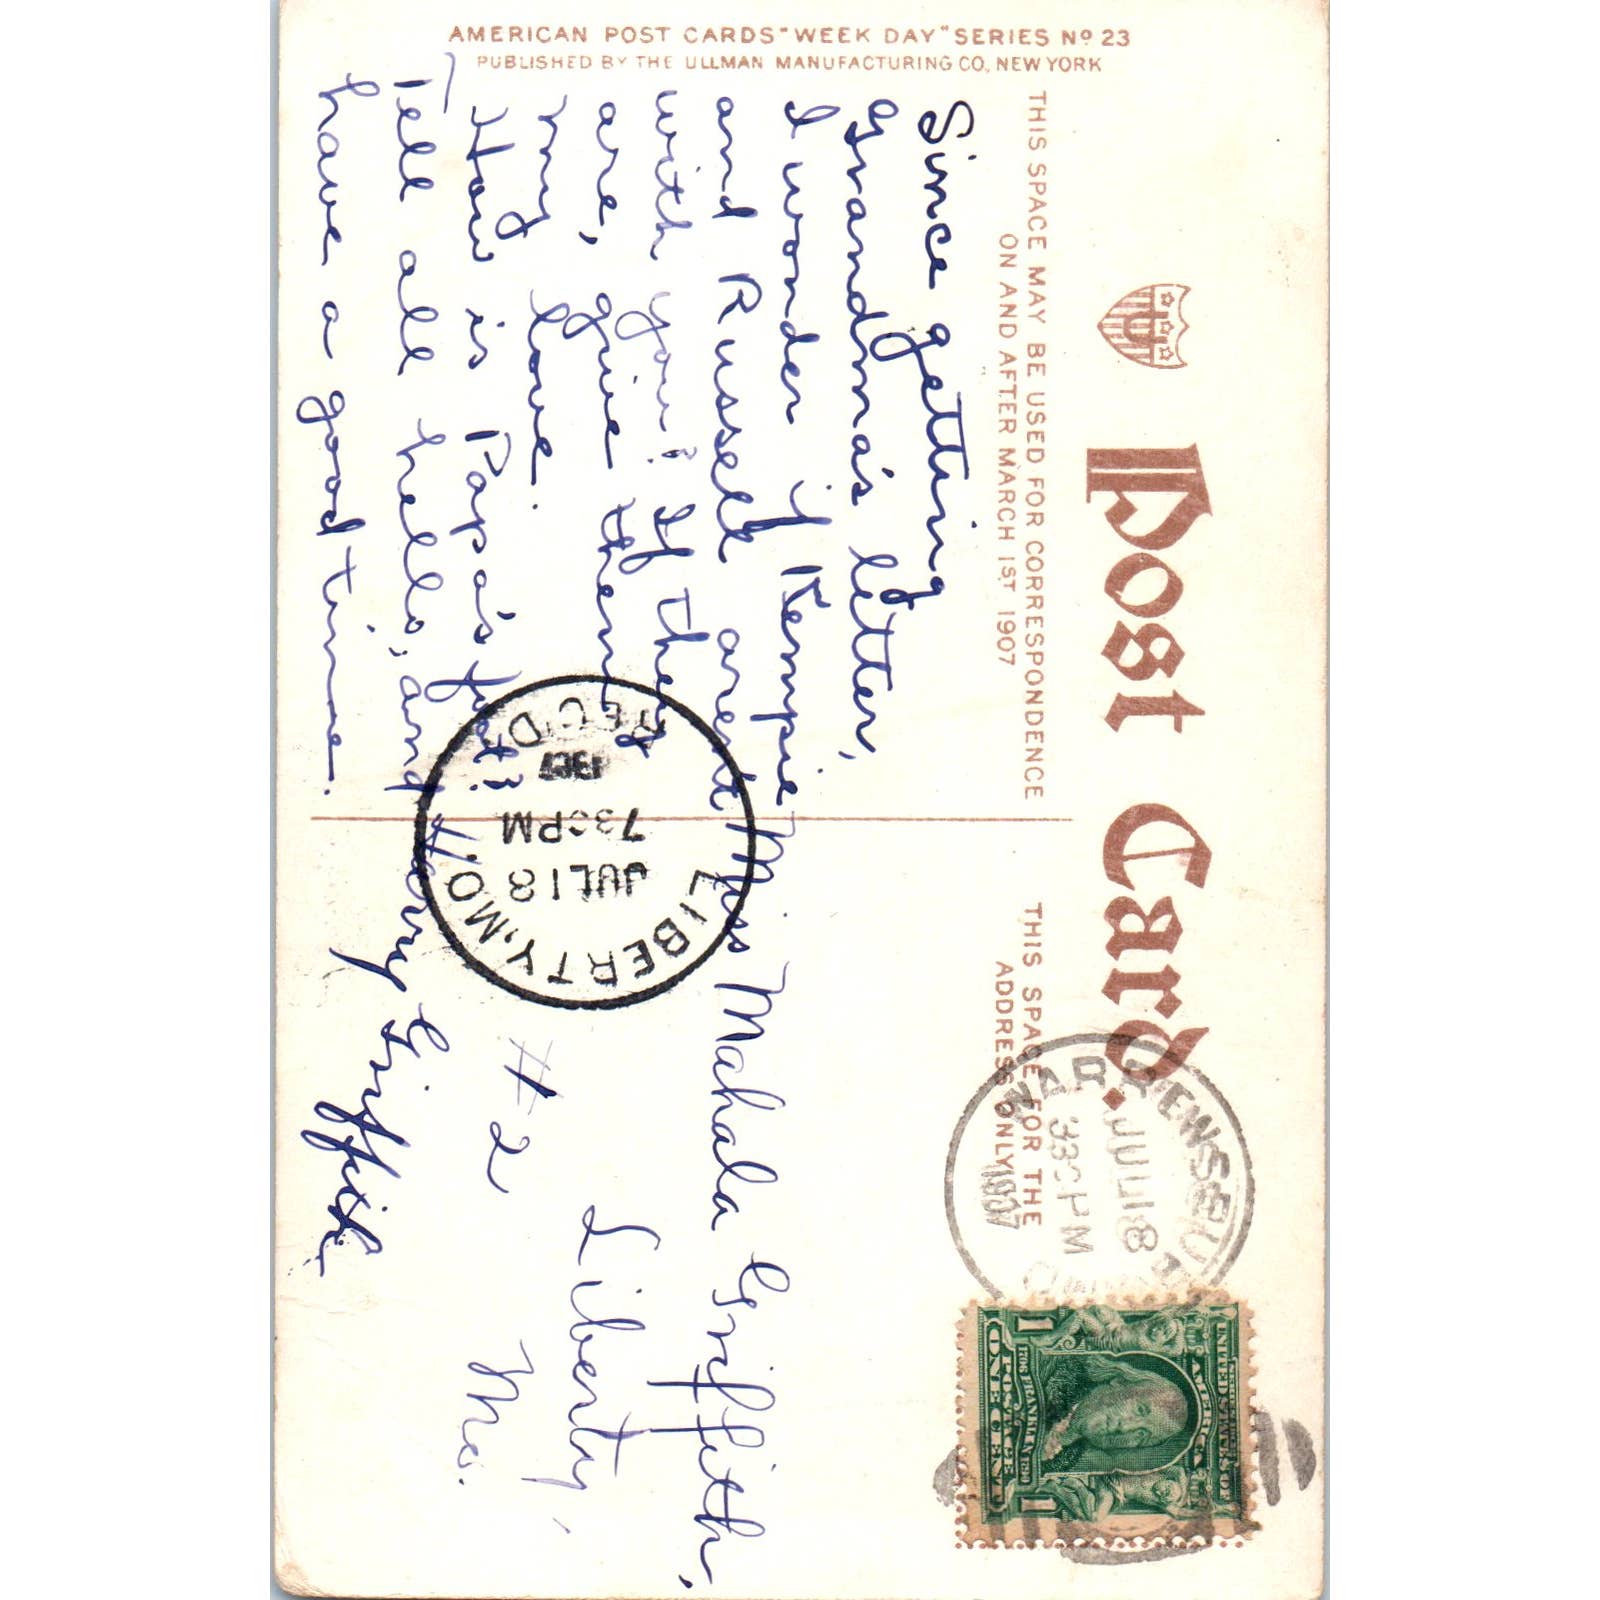 AMERICAN POST CARDS "WEEK DAY" SERIES No 23
PUBLISHED BY THE ULLMAN MANUFACTURING CO., NEW YORK
Post Card.
THIS SPACE MAY BE USED FOR CORRESPONDENCE
ON AND AFTER MARCH 1ST 1907
THIS SPACE FOR THE
ADDRESS ONLY
Since getting
Grandma's letter,
I wonder if Kempie
and Russell arent
with you? If they
are, give them
my love.
How is Papa's foot?
Tell all hello, and
have a good time.
Harry Griffith
Miss Mahala Griffith,
Liberty,
#2 Mo.
LIBERTY, MO.
JUL 18
730PM
1907
REC'D
WARRENSBURG
MO
JUL 18
330PM
1907
UNITED STATES OF
AMERICA
1706 FRANKLIN 1790
POSTAGE
1 ONE CENT 1